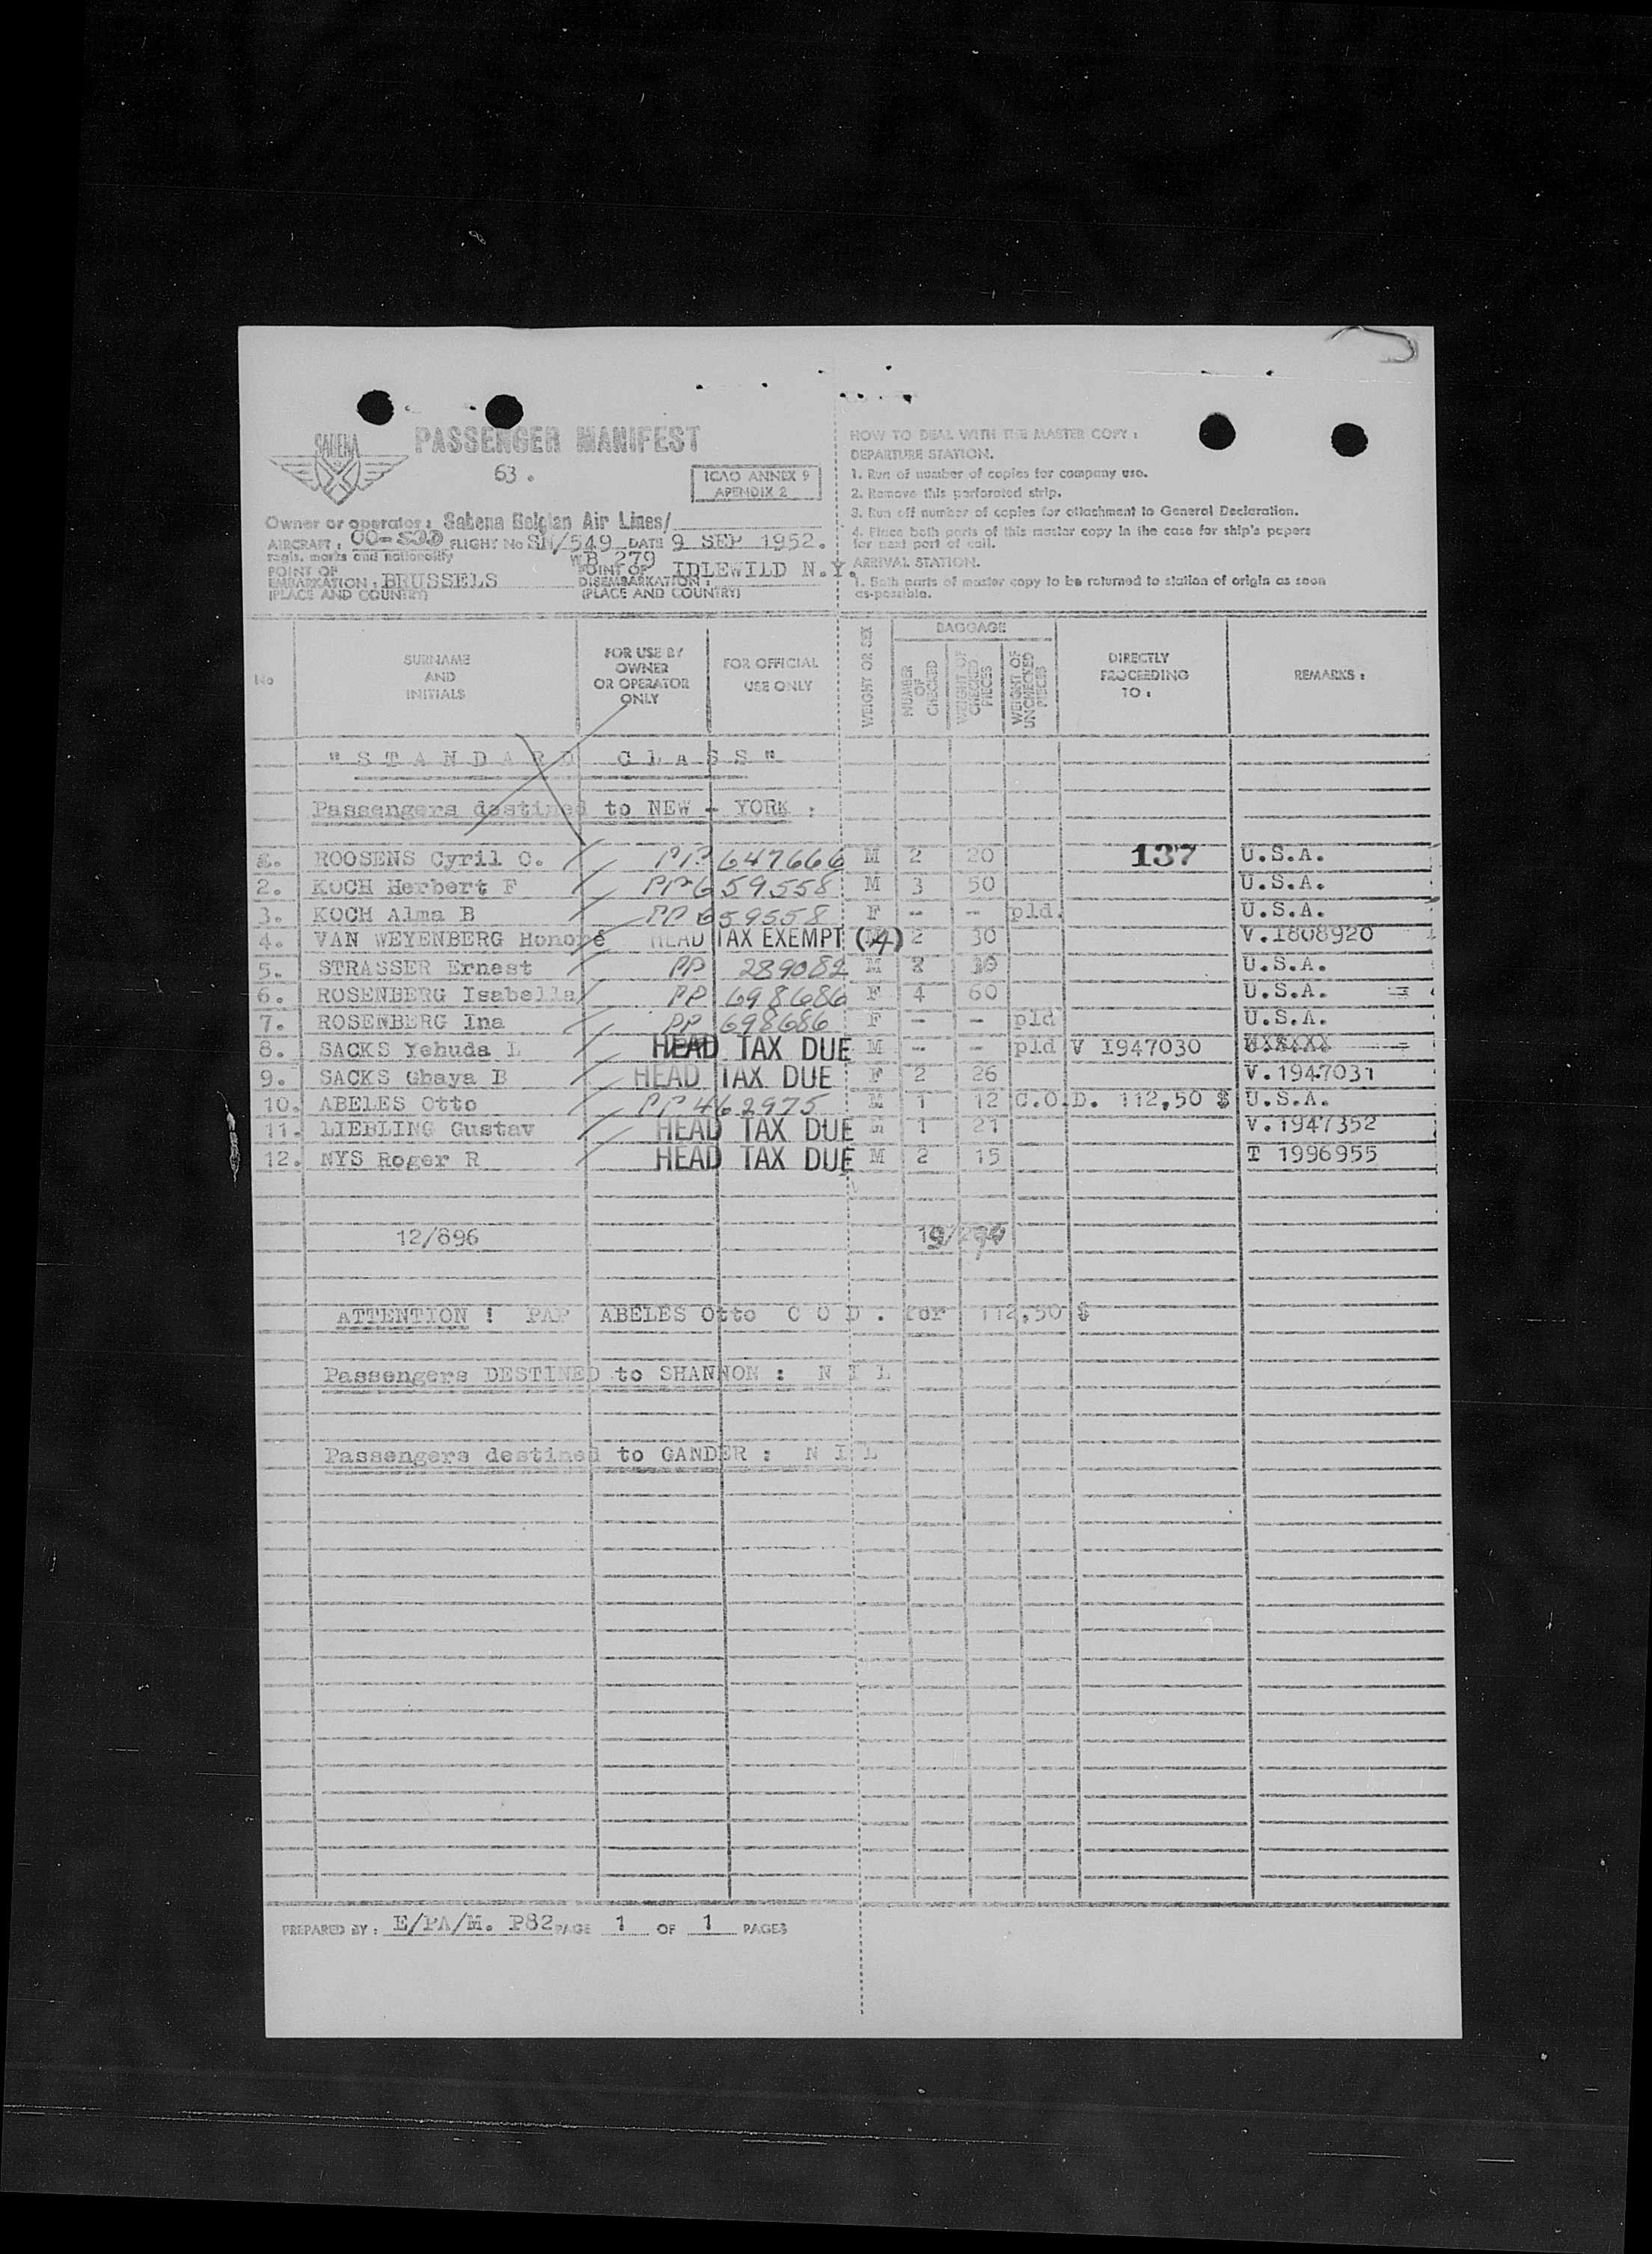 SABENA
PASSENGER MANIFEST
63.
ICAO ANNEX 9
APENDIX 2
Owner or operator : Sabena Belgian Air Lines/
AIRCRAFT : FLIGHT No SN/549 DATE 9 SEP 1952.
regis. marks and nationality
WB 279
POINT OF
EMBARKATION : BRUSSELS
(PLACE AND COUNTRY)
POINT OF
DISEMBARKATION : IDLEWILD N.Y.
(PLACE AND COUNTRY)
HOW TO DEAL WITH THE MASTER COPY :
DEPARTURE STATION.
1. Run of number of copies for company use.
2. Remove this perforated strip.
3. Run off number of copies for attachment to General Declaration.
4. Place both parts of this master copy in the case for ship's papers
for next port of call.
ARRIVAL STATION.
1. Both parts of master copy to be returned to station of origin as soon
as possible.
No
SURNAME
AND
INITIALS
FOR USE BY
OWNER
OR OPERATOR
ONLY
FOR OFFICIAL
USE ONLY
WEIGHT OR SEX
BAGGAGE
NUMBER
OF
CHECKED
WEIGHT OF
CHECKED
PIECES
WEIGHT OF
UNCHECKED
PIECES
DIRECTLY
PROCEEDING
TO :
REMARKS :
"STANDARD CLASS"
Passengers destined to NEW - YORK :
1. ROOSENS Cyril C. PP 647666 M 2 20 137 U.S.A.
2. KOCH Herbert F PP 659558 M 3 50 U.S.A.
3. KOCH Alma B PP 659558 F - - pld. U.S.A.
4. VAN WEYENBERG Honoré HEAD TAX EXEMPT (4) 2 30 V.1808920
5. STRASSER Ernest PP 289082 M U.S.A.
6. ROSENBERG Isabella PP 698686 F 4 60 U.S.A. =
7. ROSENBERG Ina PP 698686 F - - pld U.S.A.
8. SACKS Yehuda L HEAD TAX DUE M - - pld V 1947030 =
9. SACKS Ghaya B HEAD TAX DUE F 2 26 V.1947031
10. ABELES Otto PP 462975 M 1 12 C.O.D. 112,50 $ U.S.A.
11. LIEBLING Gustav HEAD TAX DUE M 1 21 V.1947352
12. NYS Roger R HEAD TAX DUE M 2 15 T 1996955
12/896 19/
ATTENTION ! PAP ABELES Otto C O D . for 112,50 $
Passengers DESTINED to SHANNON : N I L
Passengers destined to GANDER : N I L
PREPARED BY : E/PA/M. P82 PAGE 1 OF 1 PAGES